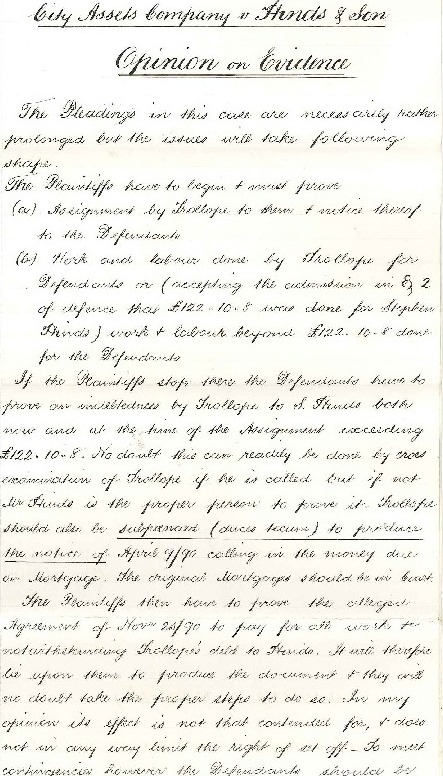 City Assets Company v Hinds & Son
Opinion on Evidence
The Pleadings in this case are necessarily rather
prolonged but the issues will take following
shape.
The Plaintiffs have to begin & must prove
(a) Assignment by Trollope to them & notice thereof
to the Defendants
(b) Work and labour done by Trollope for
Defendants or (accepting the admission in 2
of defence that £122-10-8 was done for Stephen
Hinds) work & labour beyond £122-10-8 done
for the Defendants
If the Plaintiffs stop there the Defendants have to
prove an indebtedness by Trollope to S. Hinds both
now and at the time of the Assignment exceeding
£122-10-8. No doubt this can readily be done by cross
examination of Trollope if he is called but if not
Mr Hinds is the proper person to prove it. Trollope
should also be subpoenaed (duces tecum) to produce
the notice of April 9/90 calling in the money due
on Mortgage. The original Mortgage should be in Court.
The Plaintiffs then have to prove the alleged
Agreement of Novr 25/90 to pay for all work &c
notwithstanding Trollope's debt to Hinds. It will therefore
lie upon them to produce the document & they will
no doubt take the proper steps to do so. In my
opinion its effect is not that contended for, & does
not in any way limit the right of set off. To meet
contingencies however the Defendants should be